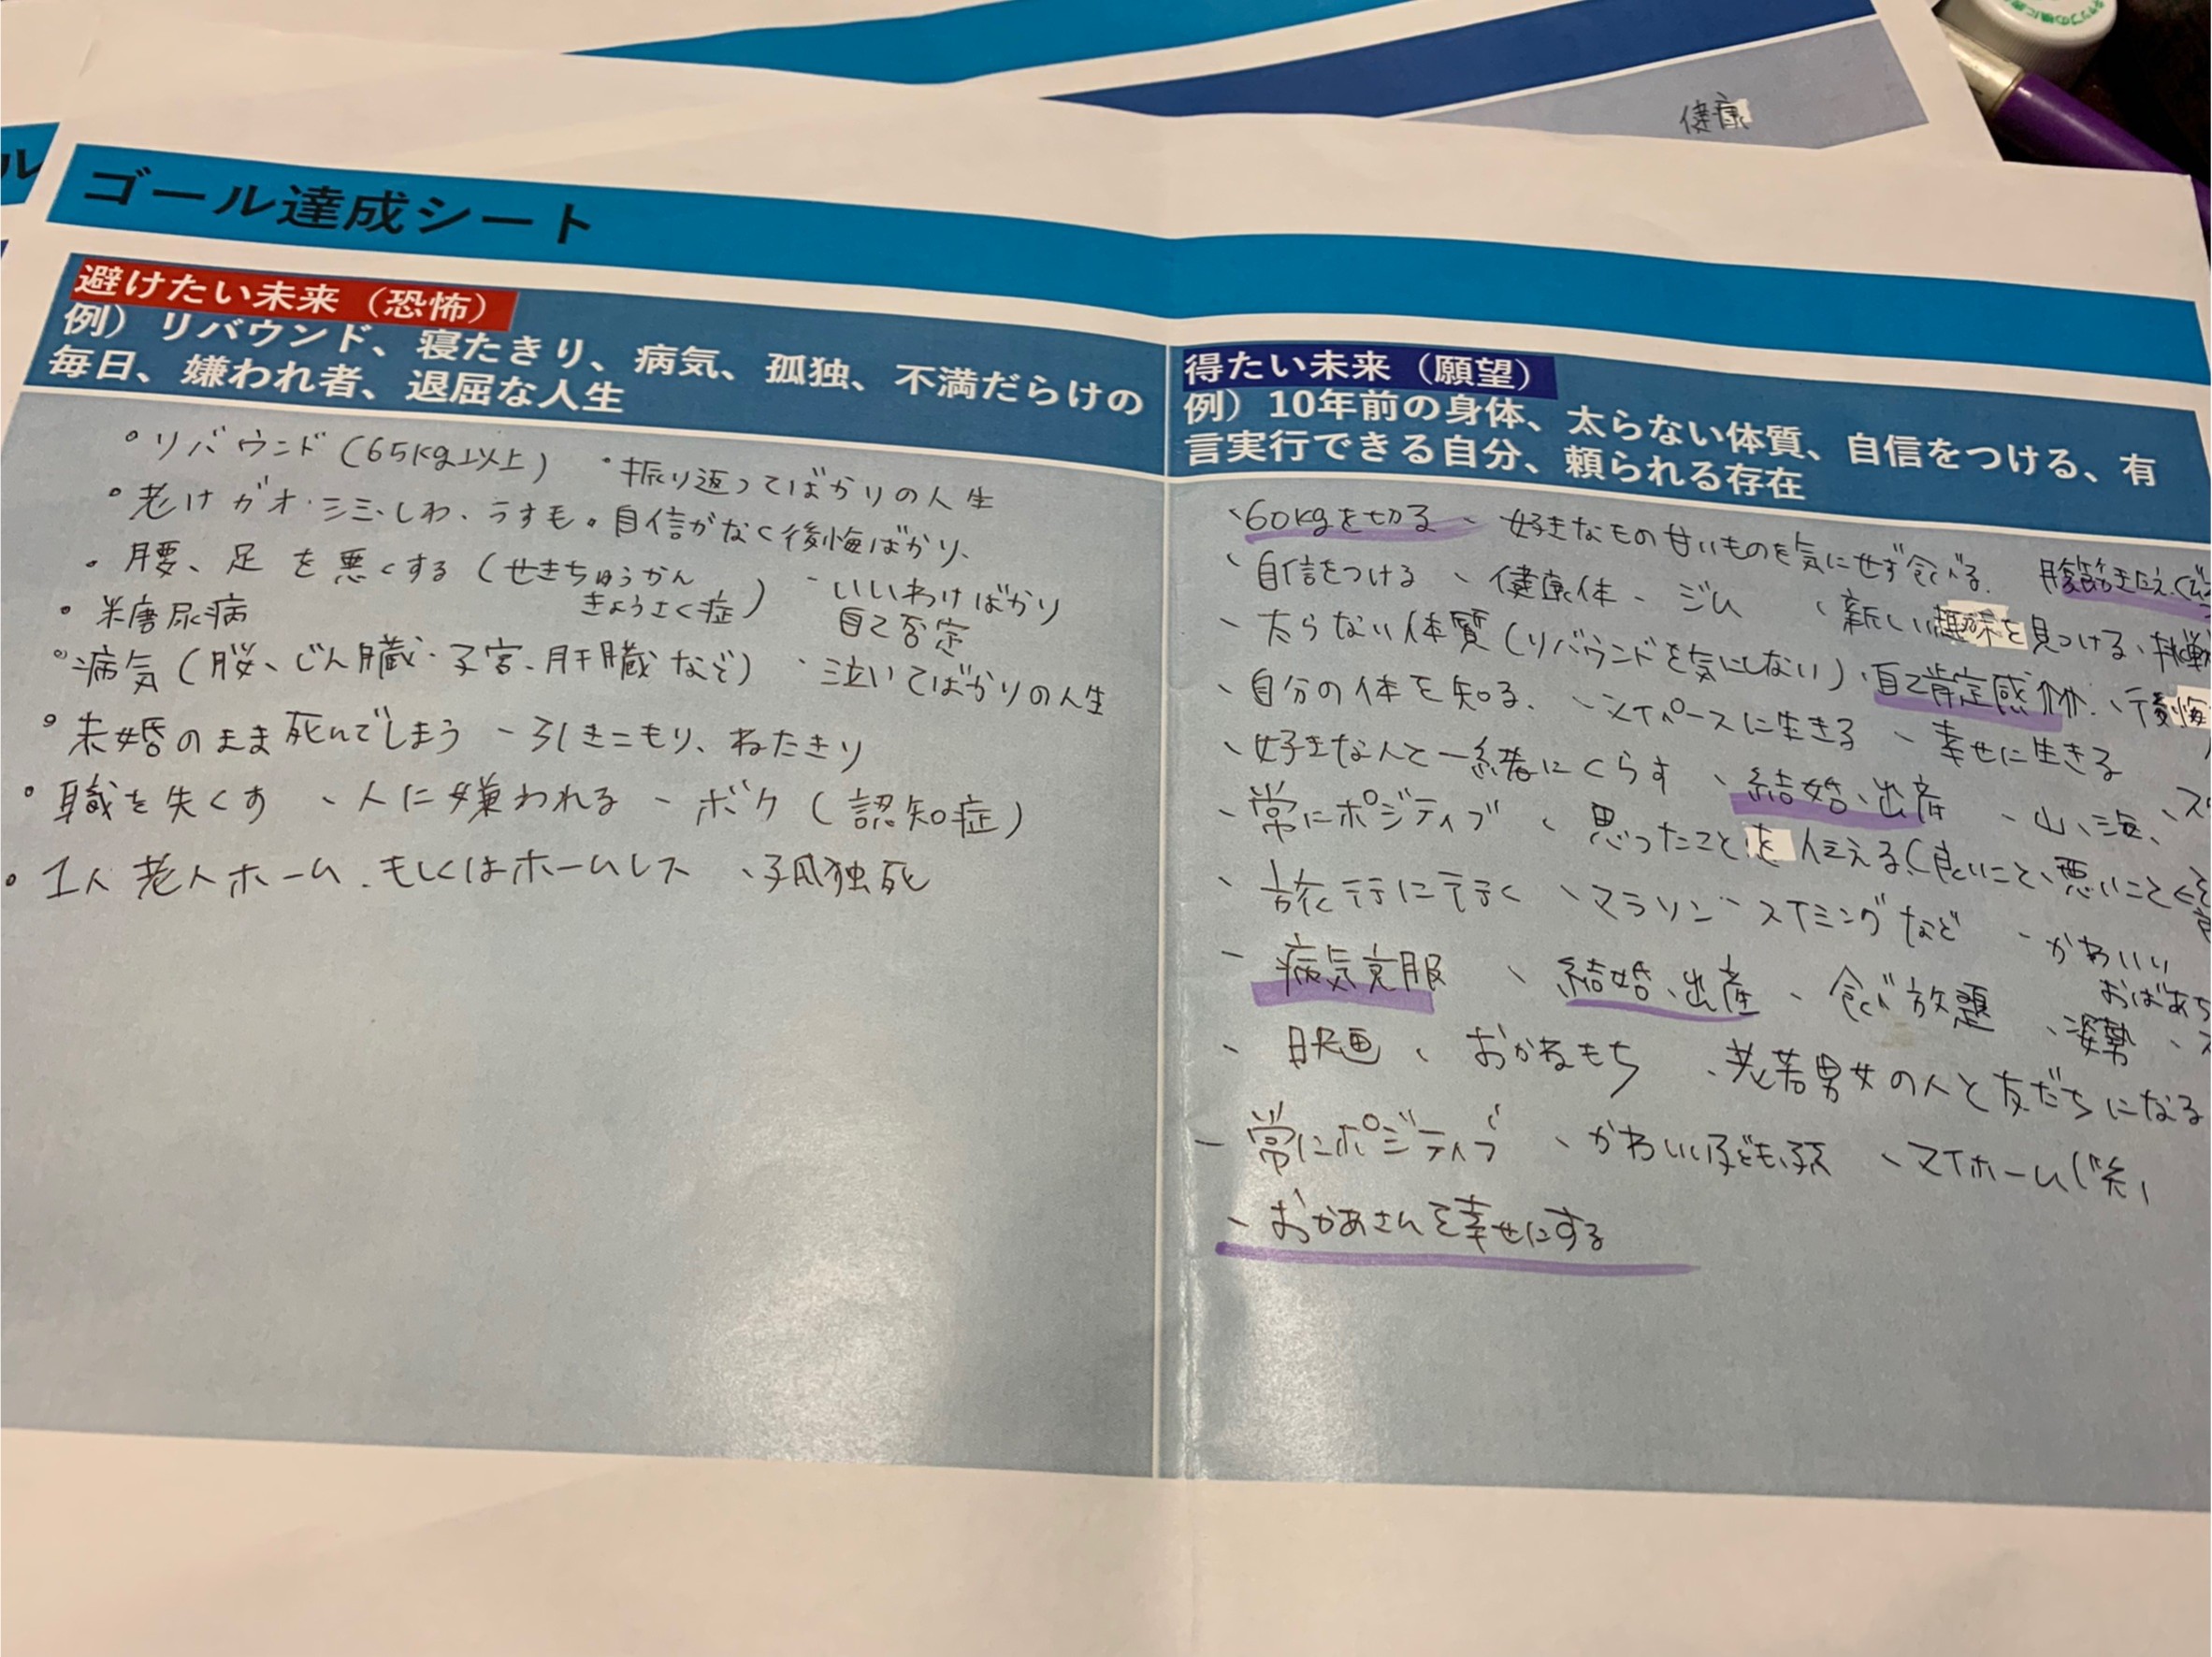 健康
ゴール達成シート
避けたい未来（恐怖）
例）リバウンド、寝たきり、病気、孤独、不満だらけの
毎日、嫌われ者、退屈な人生
・リバウンド（65kg以上）
・振り返ってばかりの人生
・老けガオ・シミ、しわ、うすも
・自信がなく後悔ばかり、
・腰、足を悪くする（せきちゅうかん
きょうさく症）
・いいわけばかり
自己否定
・糖尿病
・病気（脳、じん臓・子宮、肝臓など）
・泣いてばかりの人生
・未婚のまま死んでしまう 、引きこもり、ねたきり
・職を失くす 、人に嫌われる 、ボケ（認知症）
・1人老人ホーム、もしくはホームレス 、孤独死
得たい未来（願望）
例）10年前の身体、太らない体質、自信をつける、有
言実行できる自分、頼られる存在
、60kgを切る 、好きなもの甘いものを気にせず食べる、腹筋
、自信をつける 、健康体 、ジム 、新しい趣味を見つける、挑戦
、太らない体質（リバウンドを気にしない）、自己肯定感 、後悔
、自分の体を知る、 、マイペースに生きる 、幸せに生きる
、好きな人と一緒にくらす 、結婚、出産 、山、海、
、常にポジティブ 、思ったことを伝える（良いこと、悪いこと
、旅行に行く 、マラソン スイミングなど 、かわいい
おばあち
、病気克服 、結婚、出産 、食べ放題 、姿勢
、映画 、おかねもち 、老若男女の人と友だちになる
、常にポジティブ 、かわいい子ども、孫 、マイホーム（笑）
、おかあさんを幸せにする